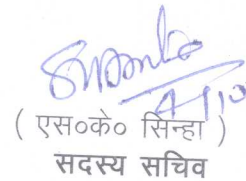 4/10
( एस०के० सिन्हा )
सदस्य सचिव